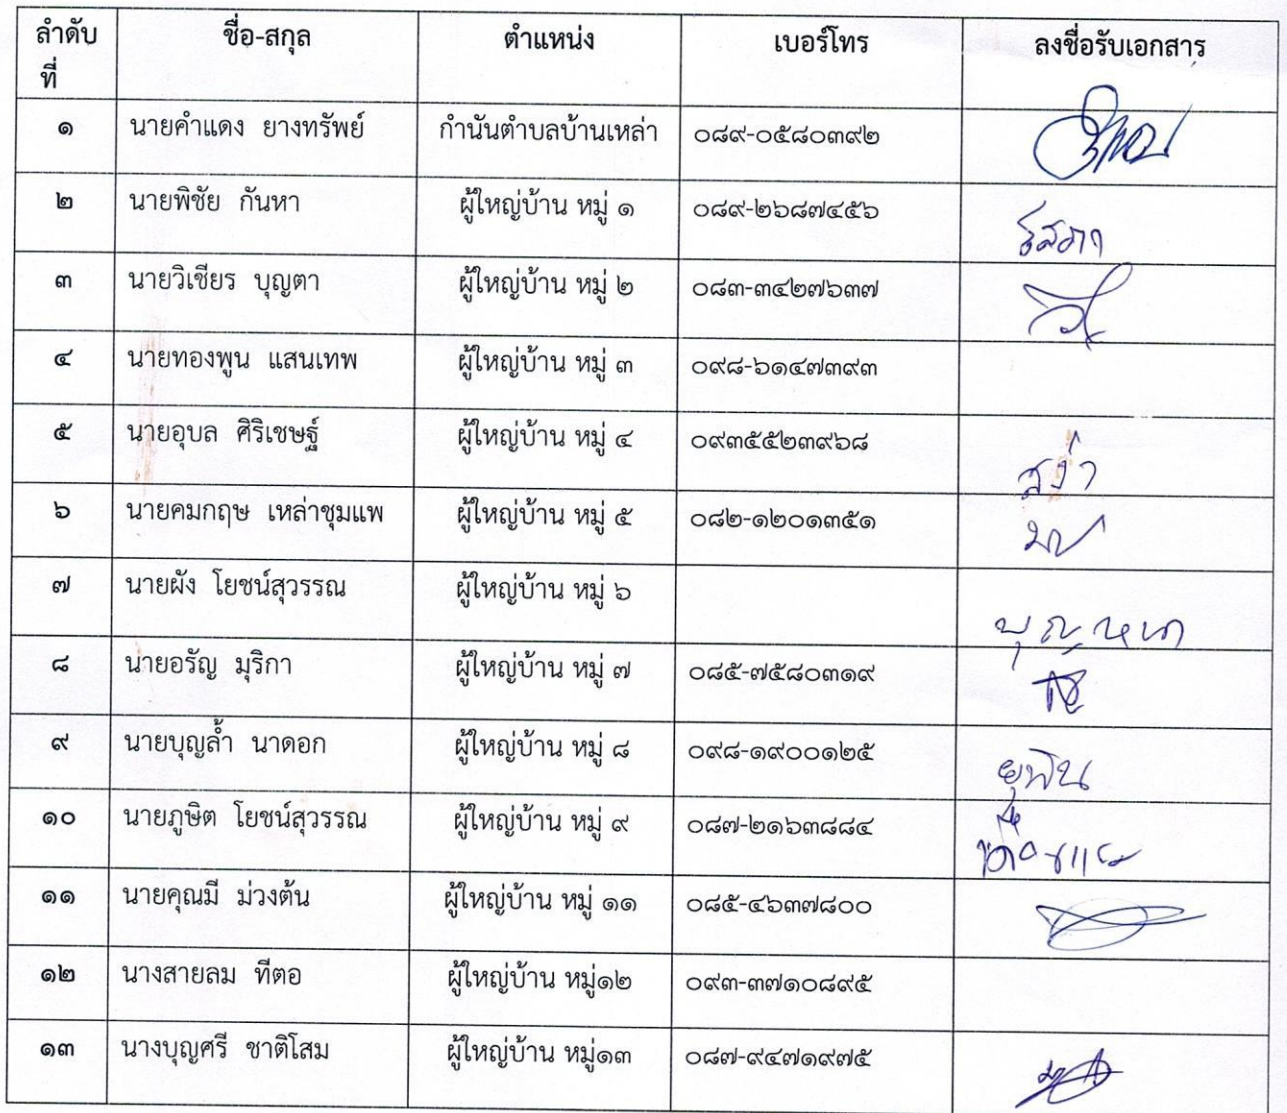 ลำดับที่ ชื่อ-สกุล ตำแหน่ง เบอร์โทร ลงชื่อรับเอกสาร
๑ นายคำแดง ยางทรัพย์ กำนันตำบลบ้านเหล่า ๐๘๙-๐๕๘๐๓๙๒
๒ นายพิชัย กันหา ผู้ใหญ่บ้าน หมู่ ๑ ๐๘๙-๒๖๘๗๔๕๖
๓ นายวิเชียร บุญตา ผู้ใหญ่บ้าน หมู่ ๒ ๐๘๓-๓๔๒๗๖๓๗
๔ นายทองพูน แสนเทพ ผู้ใหญ่บ้าน หมู่ ๓ ๐๙๘-๖๑๔๗๓๙๓
๕ นายอุบล ศิริเชษฐ์ ผู้ใหญ่บ้าน หมู่ ๔ ๐๙๓๕๕๒๓๙๖๘ สง่า
๖ นายคมกฤษ เหล่าชุมแพ ผู้ใหญ่บ้าน หมู่ ๕ ๐๘๒-๑๒๐๑๓๕๑
๗ นายผัง โยชน์สุวรรณ ผู้ใหญ่บ้าน หมู่ ๖
๘ นายอรัญ มุริกา ผู้ใหญ่บ้าน หมู่ ๗ ๐๘๕-๗๕๘๐๓๑๙
๙ นายบุญล้ำ นาดอก ผู้ใหญ่บ้าน หมู่ ๘ ๐๙๘-๑๙๐๐๑๒๕ ยุพิน
๑๐ นายภูษิต โยชน์สุวรรณ ผู้ใหญ่บ้าน หมู่ ๙ ๐๘๗-๒๑๖๓๘๘๔
๑๑ นายคุณมี ม่วงต้น ผู้ใหญ่บ้าน หมู่ ๑๑ ๐๘๕-๔๖๓๗๘๐๐
๑๒ นางสายลม ทีตอ ผู้ใหญ่บ้าน หมู่๑๒ ๐๙๓-๓๗๑๐๘๙๕
๑๓ นางบุญศรี ชาติโสม ผู้ใหญ่บ้าน หมู่๑๓ ๐๘๗-๙๔๗๑๙๗๕